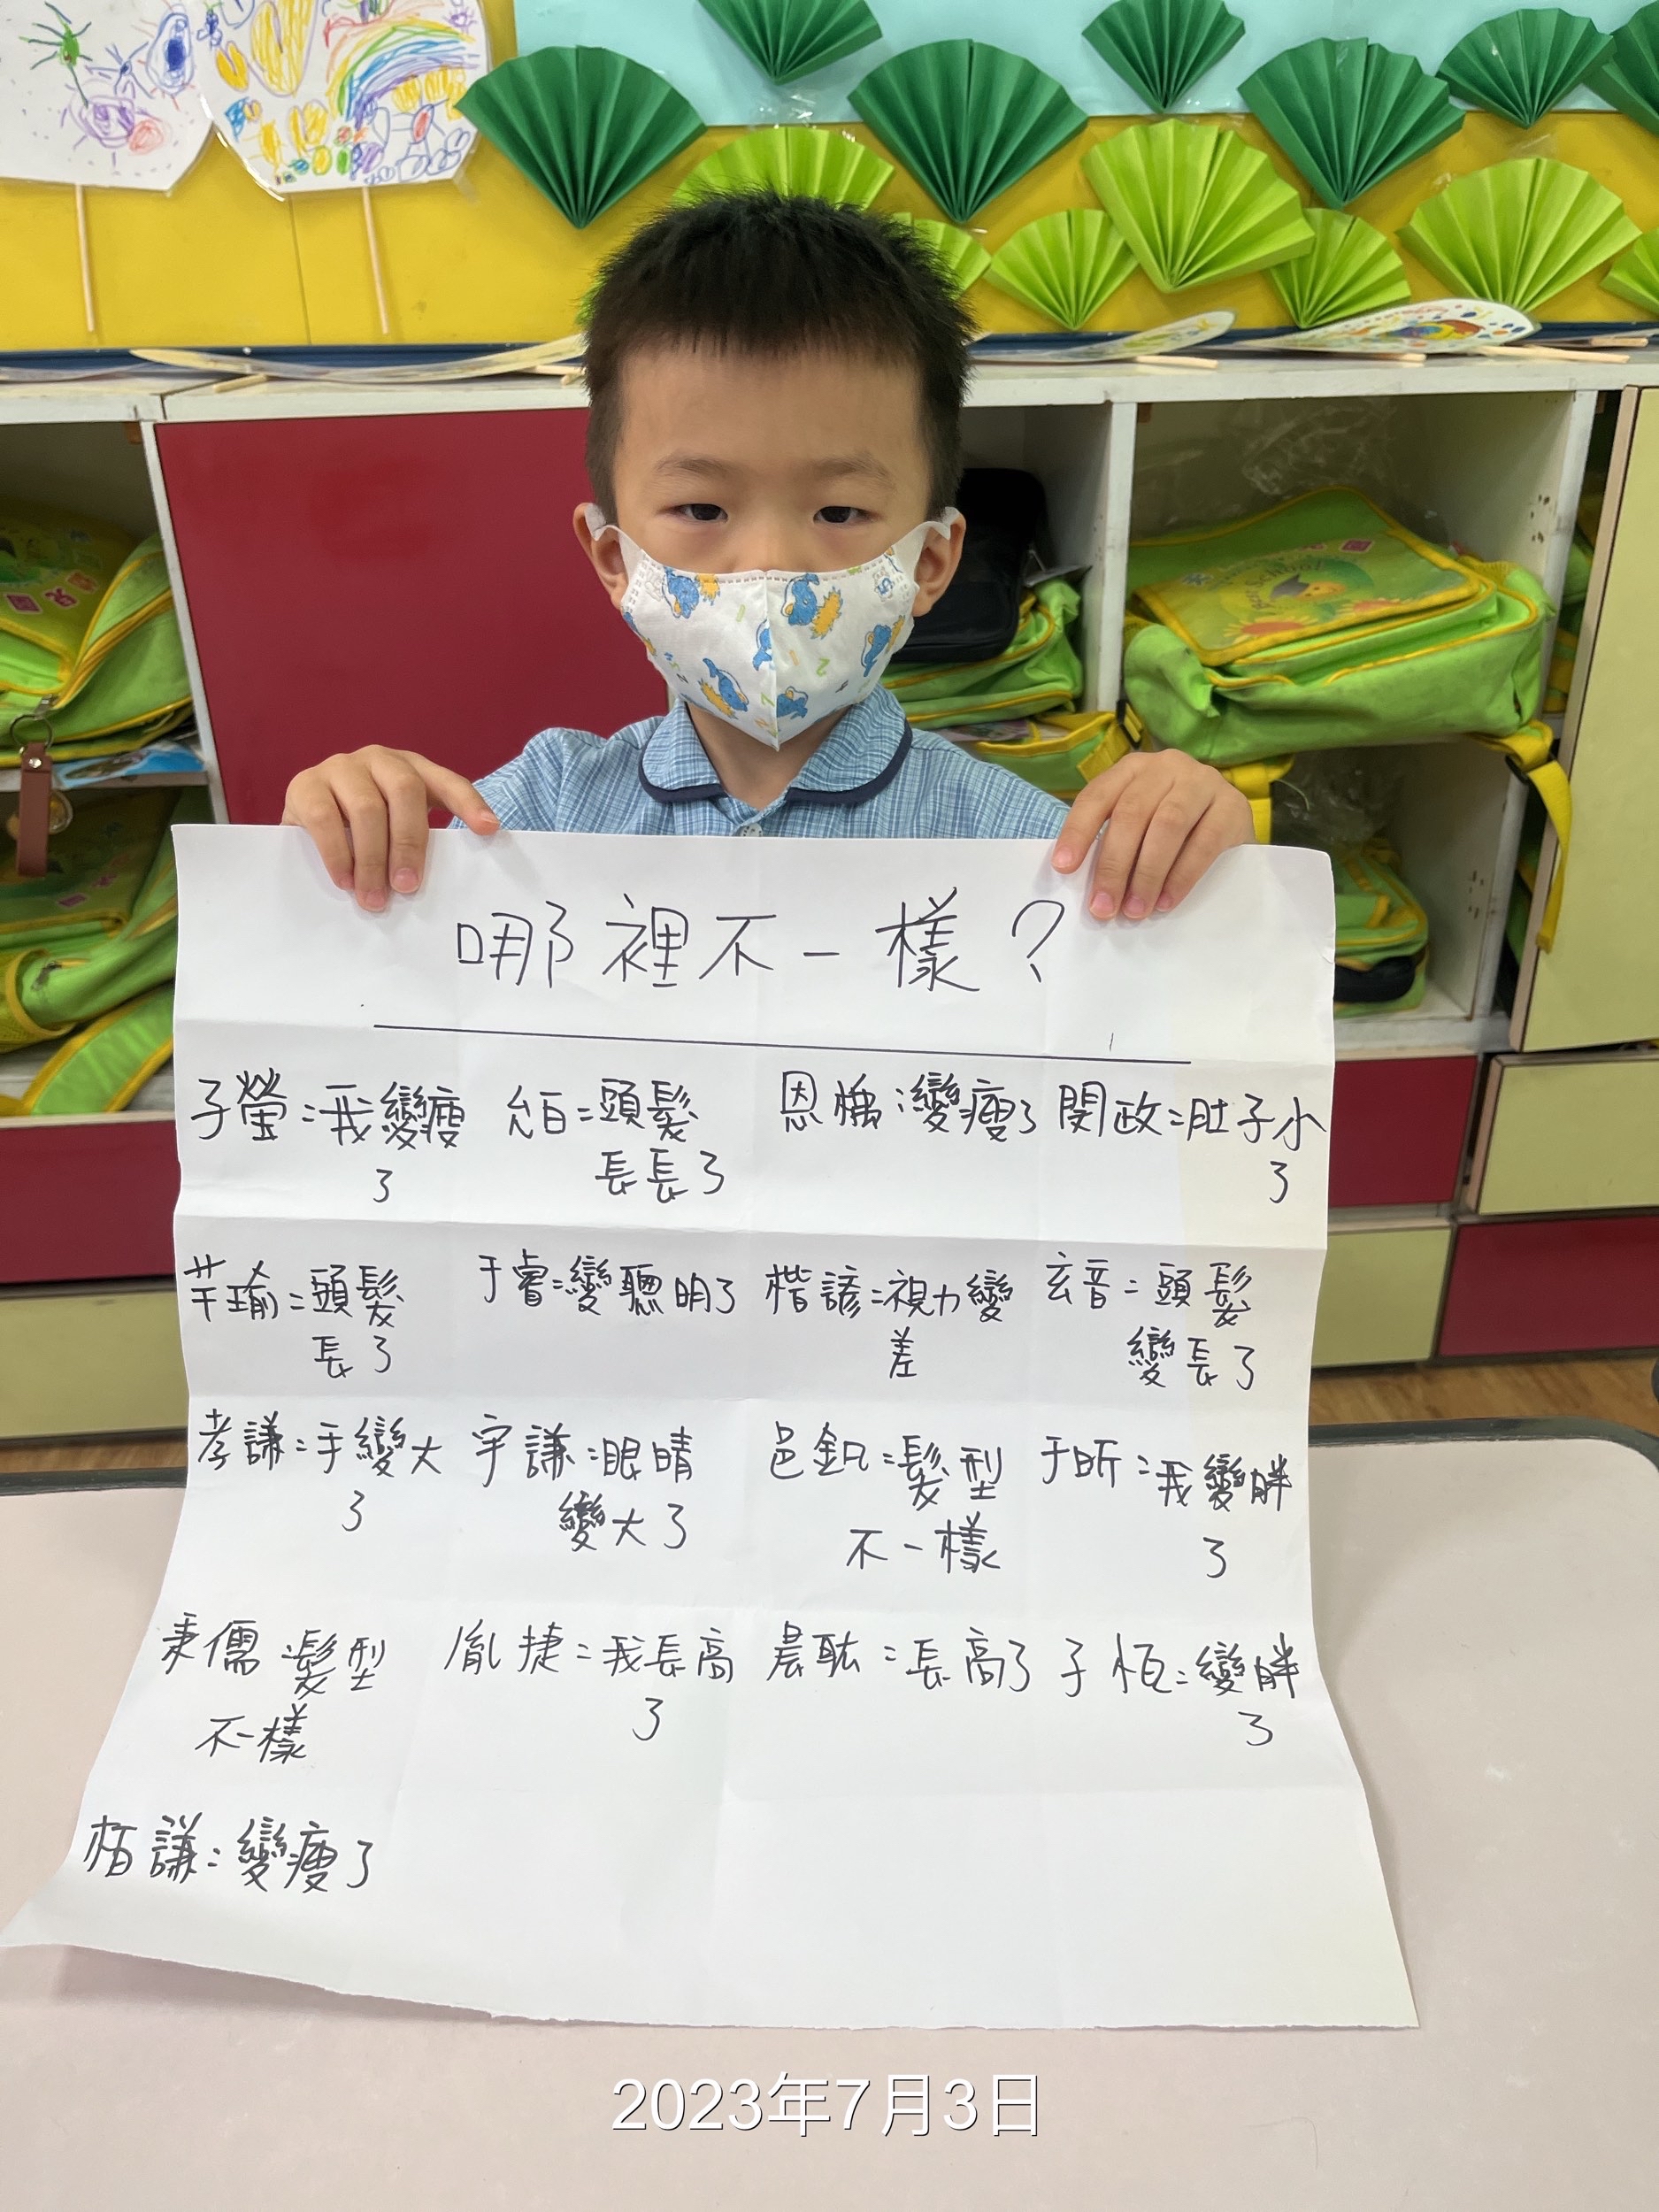 哪裡不一樣?
子瑩:我變瘦了
允百:頭髮長長了
恩橗:變瘦了
閔政:肚子小了
芊瑜:頭髮長了
于睿:變聰明了
楷諺:視力變差
玄音:頭髮變長了
孝謙:手變大了
宇謙:眼睛變大了
邑釩:髮型不一樣
于昕:我變胖了
秉儒:髮型不一樣
胤捷:我長高了
晨耿:長高了
子恆:變胖了
栢謙:變瘦了
2023年7月3日